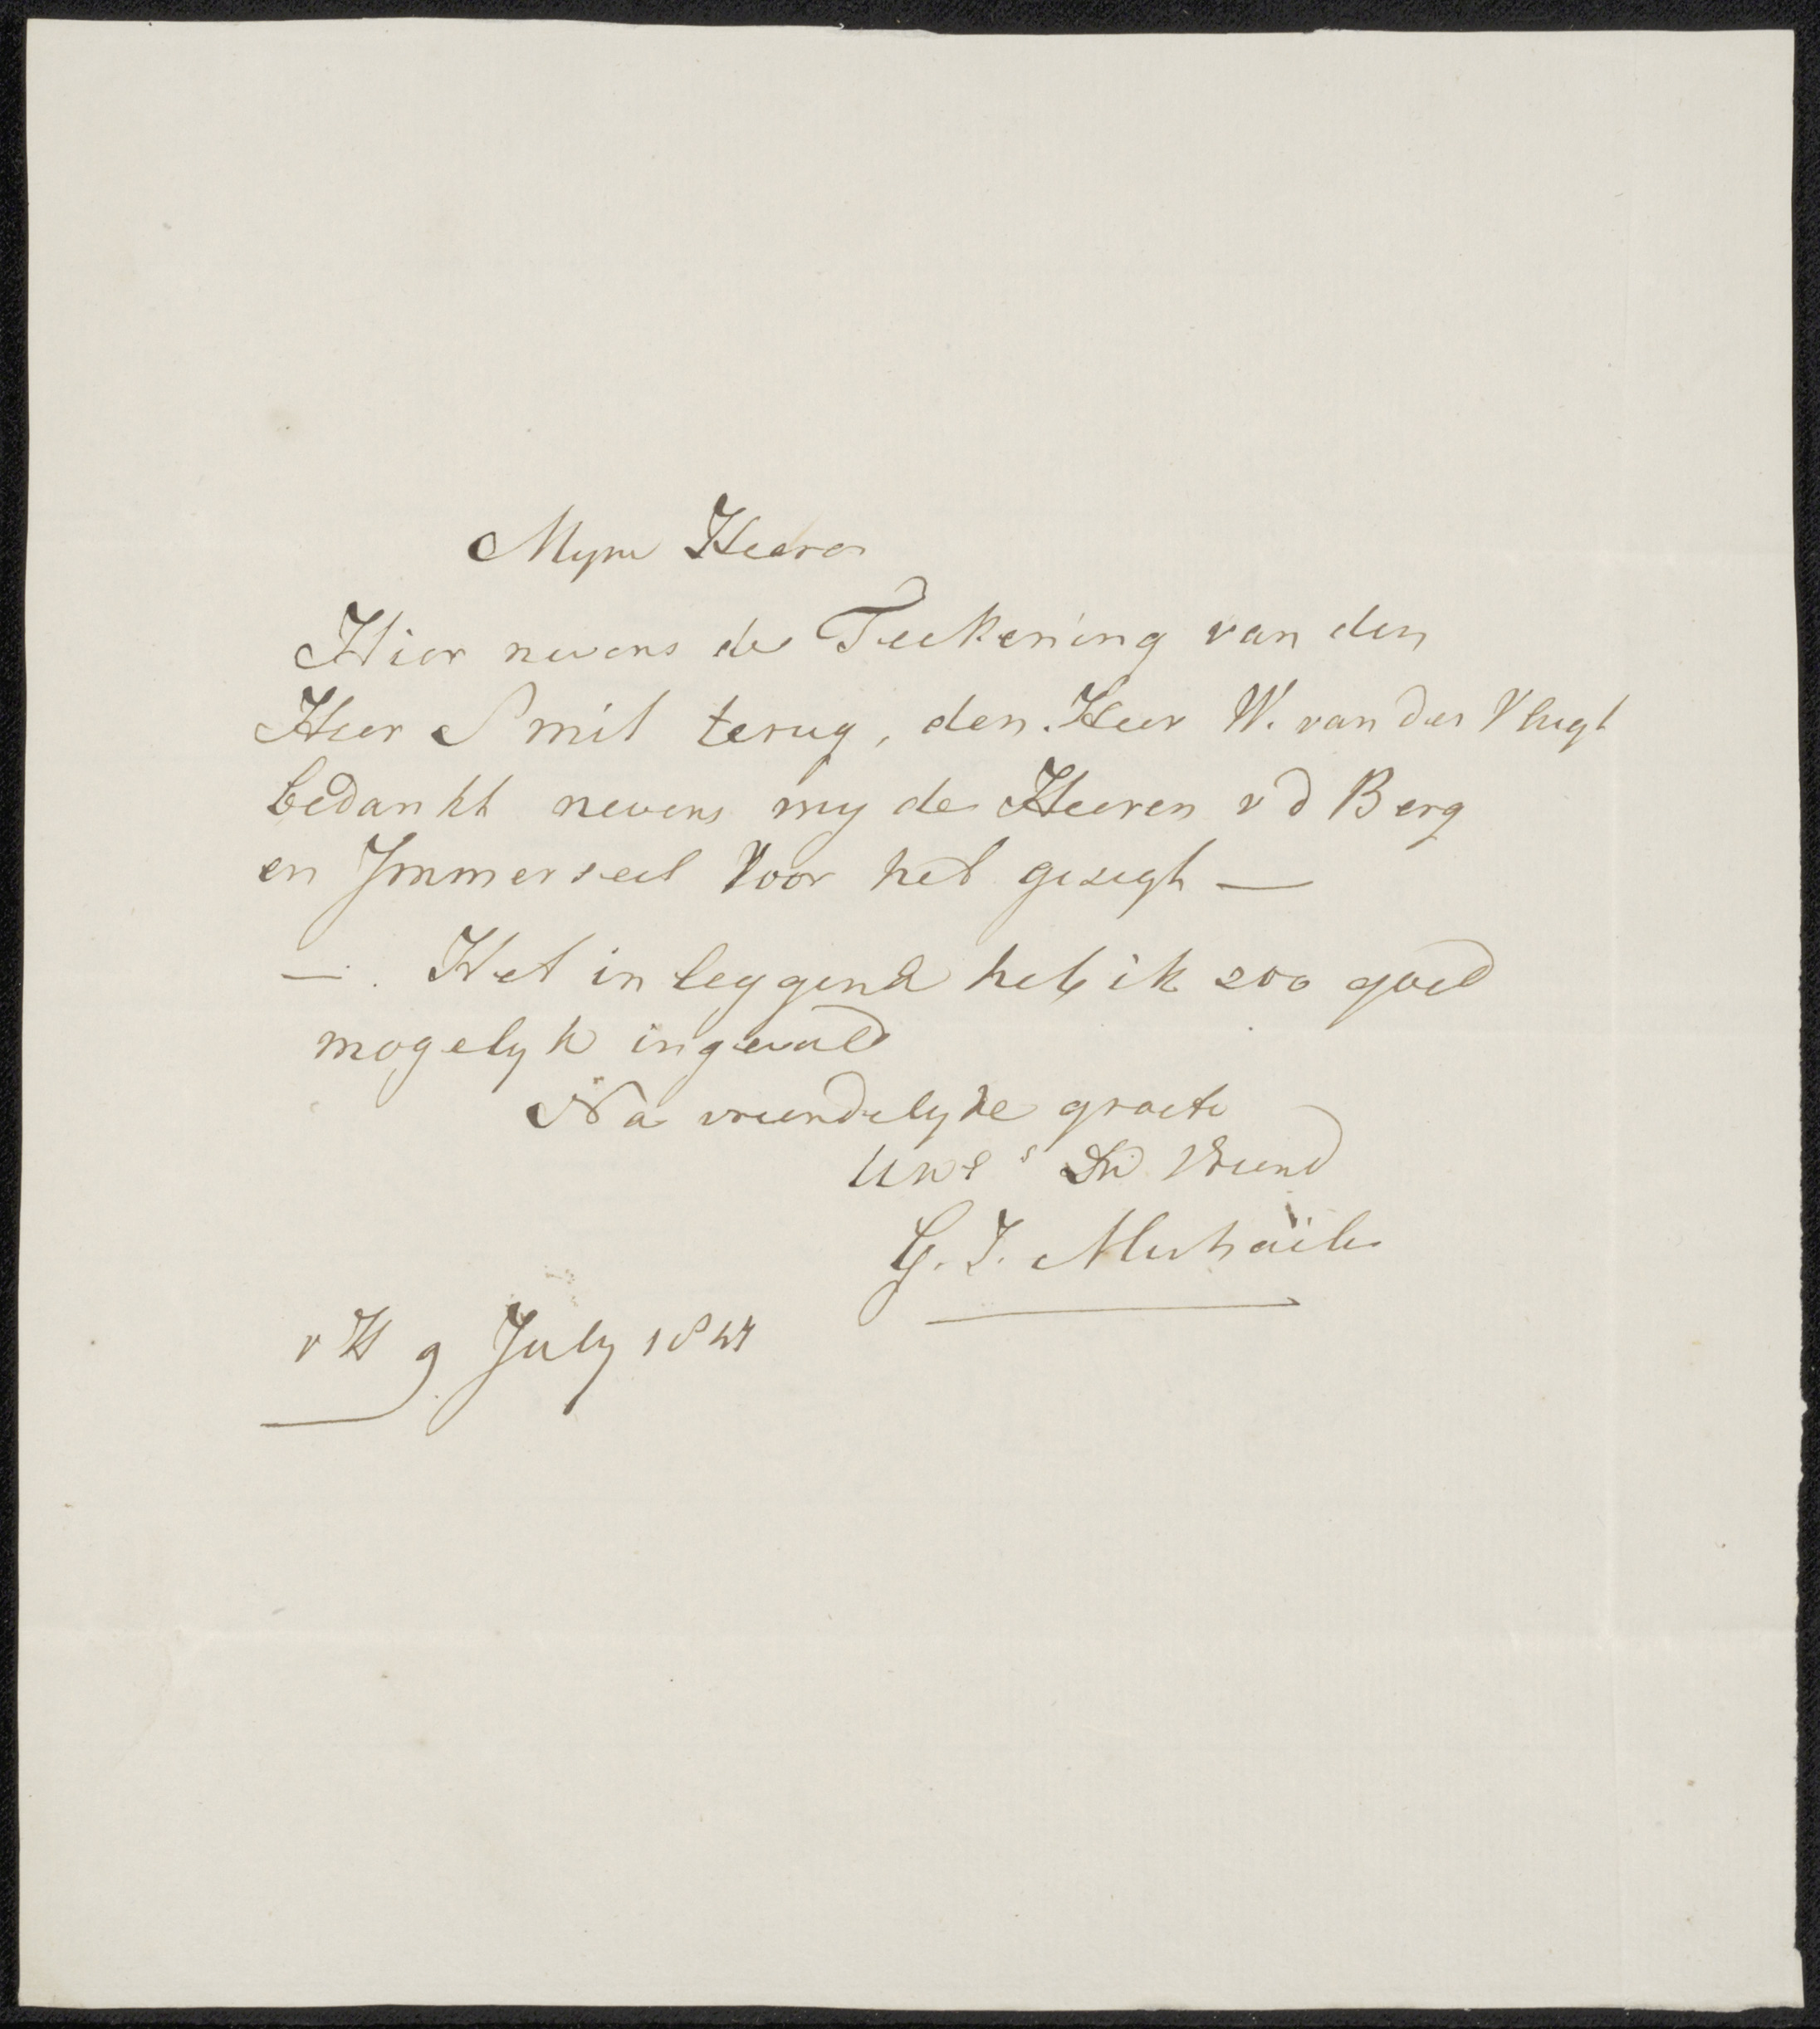 Myne Heeren
Hier nevens de Teekening van den
Heer Smit terug, den Heer W. van der Vlugt
bedankt nevens my de Heeren v d Berg
en Immerseel voor het gezigt —
—. Het inleggend heb ik zoo goed
mogelyk ingevuld
Na vriendelyke groete
UWE Dw Vriend
G. J. Michaëlis
v H 9 July 1841